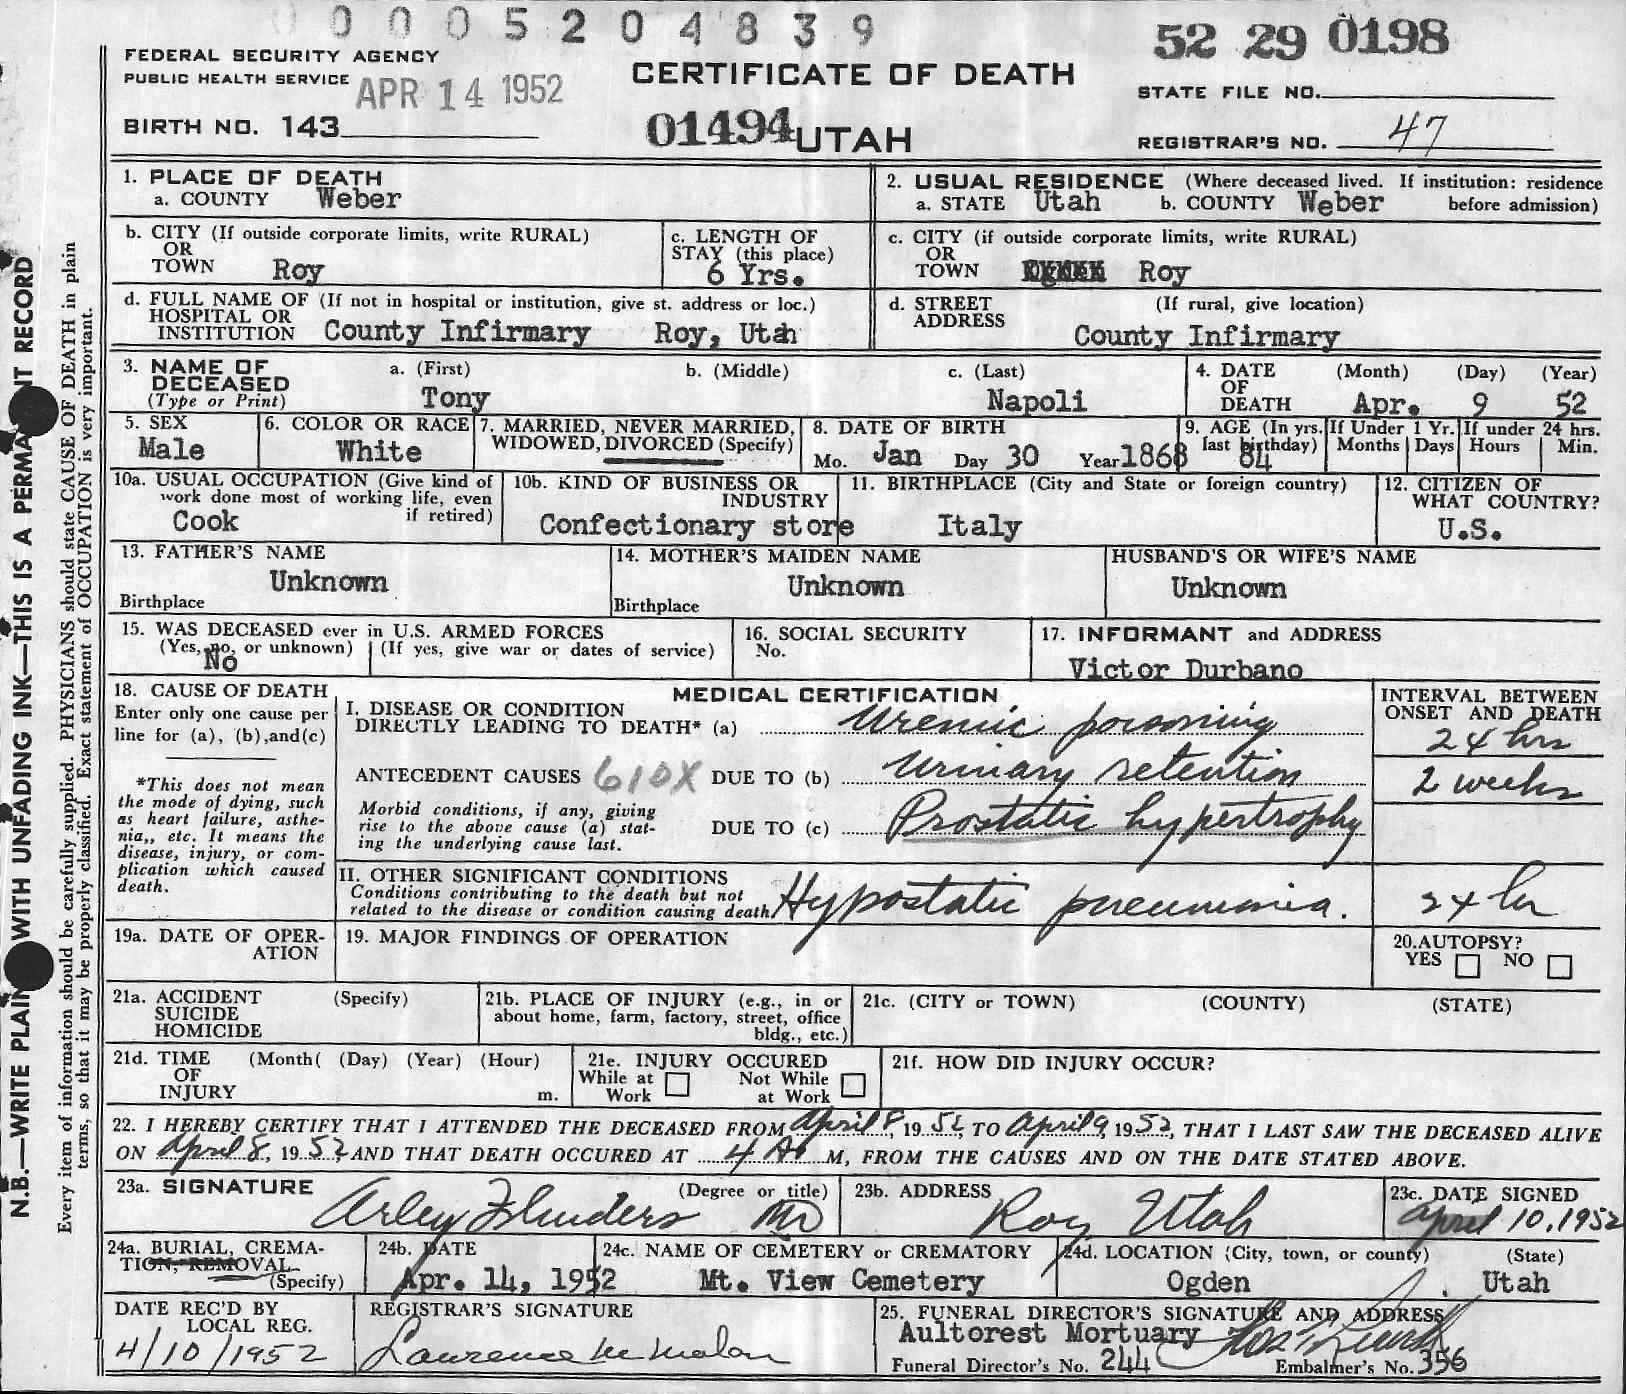 0 0 0 5 2 0 4 8 3 9
52 29 0198
FEDERAL SECURITY AGENCY
PUBLIC HEALTH SERVICE
APR 14 1952
CERTIFICATE OF DEATH
STATE FILE NO.
BIRTH NO. 143
01494 UTAH
REGISTRAR'S NO. 47
1. PLACE OF DEATH
a. COUNTY Weber
2. USUAL RESIDENCE (Where deceased lived. If institution: residence
a. STATE Utah b. COUNTY Weber before admission)
b. CITY (If outside corporate limits, write RURAL)
OR
TOWN Roy
c. LENGTH OF
STAY (this place)
6 Yrs.
c. CITY (if outside corporate limits, write RURAL)
OR
TOWN Roy
d. FULL NAME OF (If not in hospital or institution, give st. address or loc.)
HOSPITAL OR
INSTITUTION County Infirmary Roy, Utah
d. STREET (If rural, give location)
ADDRESS
County Infirmary
3. NAME OF
DECEASED
(Type or Print)
a. (First) b. (Middle) c. (Last)
Tony Napoli
4. DATE (Month) (Day) (Year)
OF
DEATH Apr. 9 52
5. SEX
Male
6. COLOR OR RACE
White
7. MARRIED, NEVER MARRIED,
WIDOWED, DIVORCED (Specify)
8. DATE OF BIRTH
Mo. Jan Day 30 Year 1868
9. AGE (In yrs.
last birthday)
84
If Under 1 Yr.
Months Days
If under 24 hrs.
Hours Min.
10a. USUAL OCCUPATION (Give kind of
work done most of working life, even
if retired)
Cook
10b. KIND OF BUSINESS OR
INDUSTRY
Confectionary store
11. BIRTHPLACE (City and State or foreign country)
Italy
12. CITIZEN OF
WHAT COUNTRY?
U.S.
13. FATHER'S NAME
Unknown
Birthplace
14. MOTHER'S MAIDEN NAME
Unknown
Birthplace
HUSBAND'S OR WIFE'S NAME
Unknown
15. WAS DECEASED ever in U.S. ARMED FORCES
(Yes, no, or unknown) (If yes, give war or dates of service)
No
16. SOCIAL SECURITY
No.
17. INFORMANT and ADDRESS
Victor Durbano
18. CAUSE OF DEATH
Enter only one cause per
line for (a), (b),and(c)
*This does not mean
the mode of dying, such
as heart failure, asthe-
nia,, etc. It means the
disease, injury, or com-
plication which caused
death.
MEDICAL CERTIFICATION
I. DISEASE OR CONDITION
DIRECTLY LEADING TO DEATH* (a) Uremic poisoning
ANTECEDENT CAUSES 610X DUE TO (b) Urinary retention
Morbid conditions, if any, giving
rise to the above cause (a) stat-
ing the underlying cause last.
DUE TO (c) Prostatic hypertrophy
II. OTHER SIGNIFICANT CONDITIONS
Conditions contributing to the death but not
related to the disease or condition causing death.
Hypostatic pneumonia.
INTERVAL BETWEEN
ONSET AND DEATH
24 hrs
2 weeks
24 hr
19a. DATE OF OPER-
ATION
19. MAJOR FINDINGS OF OPERATION
20.AUTOPSY?
YES NO
21a. ACCIDENT (Specify)
SUICIDE
HOMICIDE
21b. PLACE OF INJURY (e.g., in or
about home, farm, factory, street, office
bldg., etc.)
21c. (CITY or TOWN) (COUNTY) (STATE)
21d. TIME (Month( (Day) (Year) (Hour)
OF
INJURY m.
21e. INJURY OCCURED
While at Not While
Work at Work
21f. HOW DID INJURY OCCUR?
22. I HEREBY CERTIFY THAT I ATTENDED THE DECEASED FROM April 8, 1952, TO April 9, 1952, THAT I LAST SAW THE DECEASED ALIVE
ON April 8, 1952, AND THAT DEATH OCCURED AT 4 A. M, FROM THE CAUSES AND ON THE DATE STATED ABOVE.
23a. SIGNATURE (Degree or title)
Arley Flinders MD
23b. ADDRESS
Roy Utah
23c. DATE SIGNED
April 10, 1952
24a. BURIAL, CREMA-
TION, REMOVAL
(Specify)
24b. DATE
Apr. 14, 1952
24c. NAME OF CEMETERY or CREMATORY
Mt. View Cemetery
24d. LOCATION (City, town, or county) (State)
Ogden Utah
DATE REC'D BY
LOCAL REG.
4/10/1952
REGISTRAR'S SIGNATURE
Lawrence M Malan
25. FUNERAL DIRECTOR'S SIGNATURE AND ADDRESS
Aultorest Mortuary
Funeral Director's No. 244 Embalmer's No. 356
N.B.—WRITE PLAINLY WITH UNFADING INK—THIS IS A PERMANENT RECORD
Every item of information should be carefully supplied. PHYSICIANS should state CAUSE OF DEATH in plain
terms, so that it may be properly classified. Exact statement of OCCUPATION is very important.